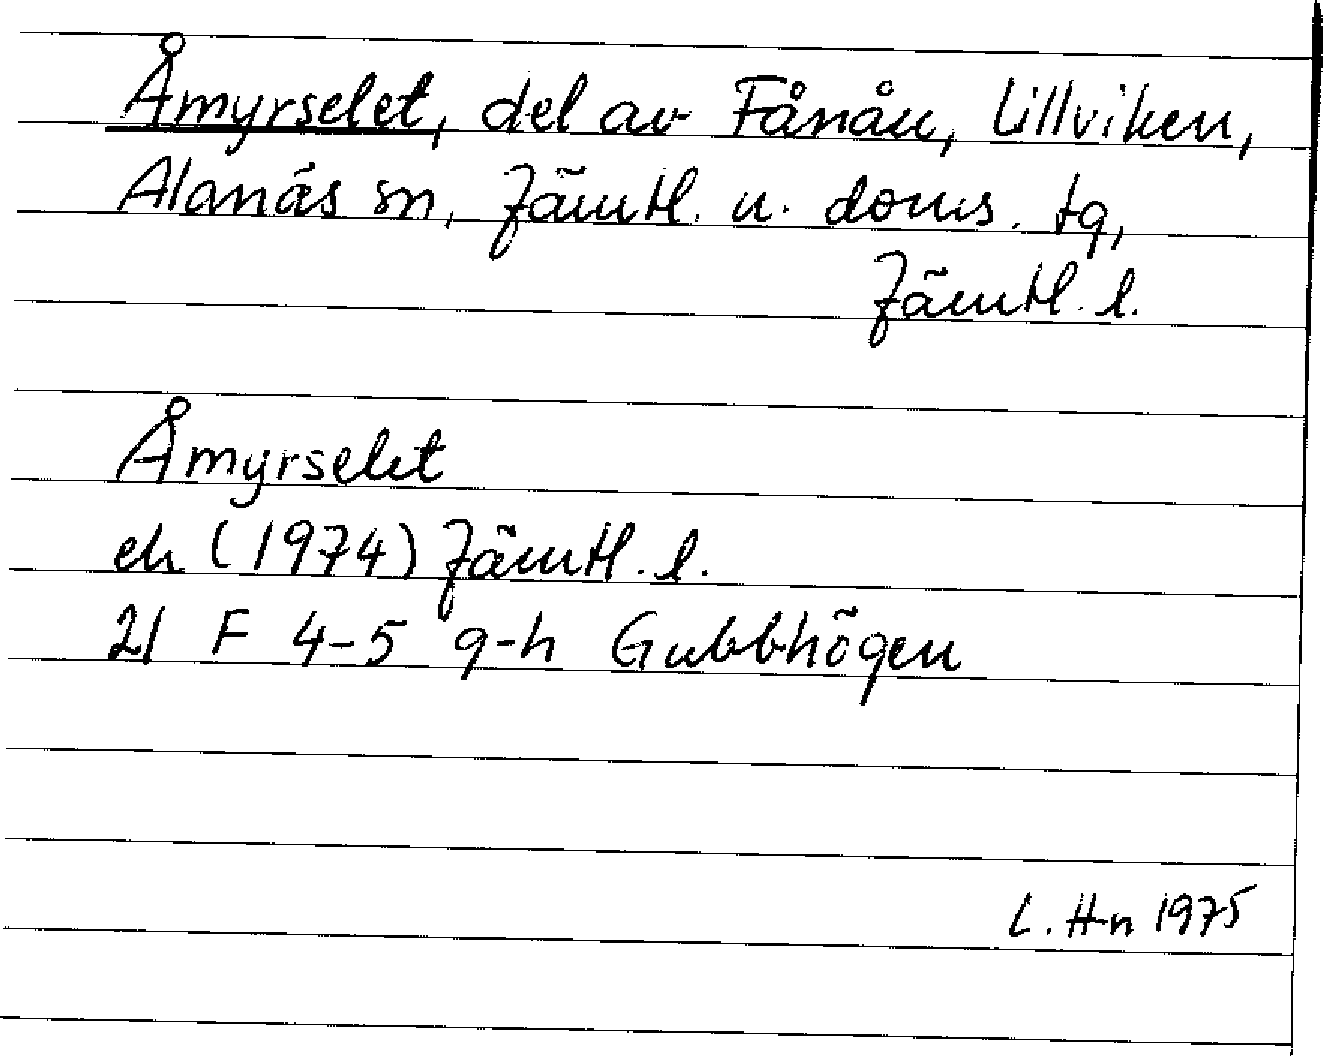 Åmyrselet, del av Fånån, Lillviken,
Alanäs sn, Jämtl. n. doms. tg,
Jämtl. l.
Åmyrselet
ek (1974) Jämtl. l.
21 F 4-5 g-h Gubbhögen
L. H-n 1975